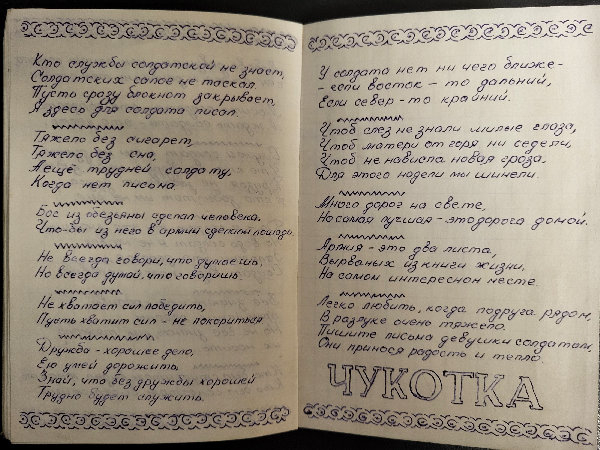 Кто службы солдатской не знает,
Солдатских сапог не таскал.
Пусть сразу блокнот закрывает,
Я здесь для солдата писал.
Тяжело без сигарет,
Тяжело без сна,
А ещё трудней солдату,
Когда нет письма.
Бог из обезьяны сделал человека.
Что-бы из него в армии сделали лошадь.
Не всегда говори, что думаешь,
Но всегда думай, что говоришь
Не хватает сил победить,
Пусть хватит сил - не покориться.
Дружба - хорошее дело,
Ею умей дорожить.
Знай, что без дружбы хорошей
Трудно будет служить.
У солдата нет ни чего ближе-
- если восток - то дальний,
Если север - то крайний.
Чтоб слез не знали милые глаза,
Чтоб матери от горя ни седели,
Чтоб не нависла новая гроза.
Для этого надели мы шинели.
Много дорог на свете,
Но самая лучшая - это дорога домой.
Армия - это два листа,
Вырваных из книги жизни,
На самом интересном месте.
Легко любить, когда подруга рядом,
В разлуке очень тяжело.
Пишите письма девушки солдатам,
Они принося радость и тепло.
ЧУКОТКА